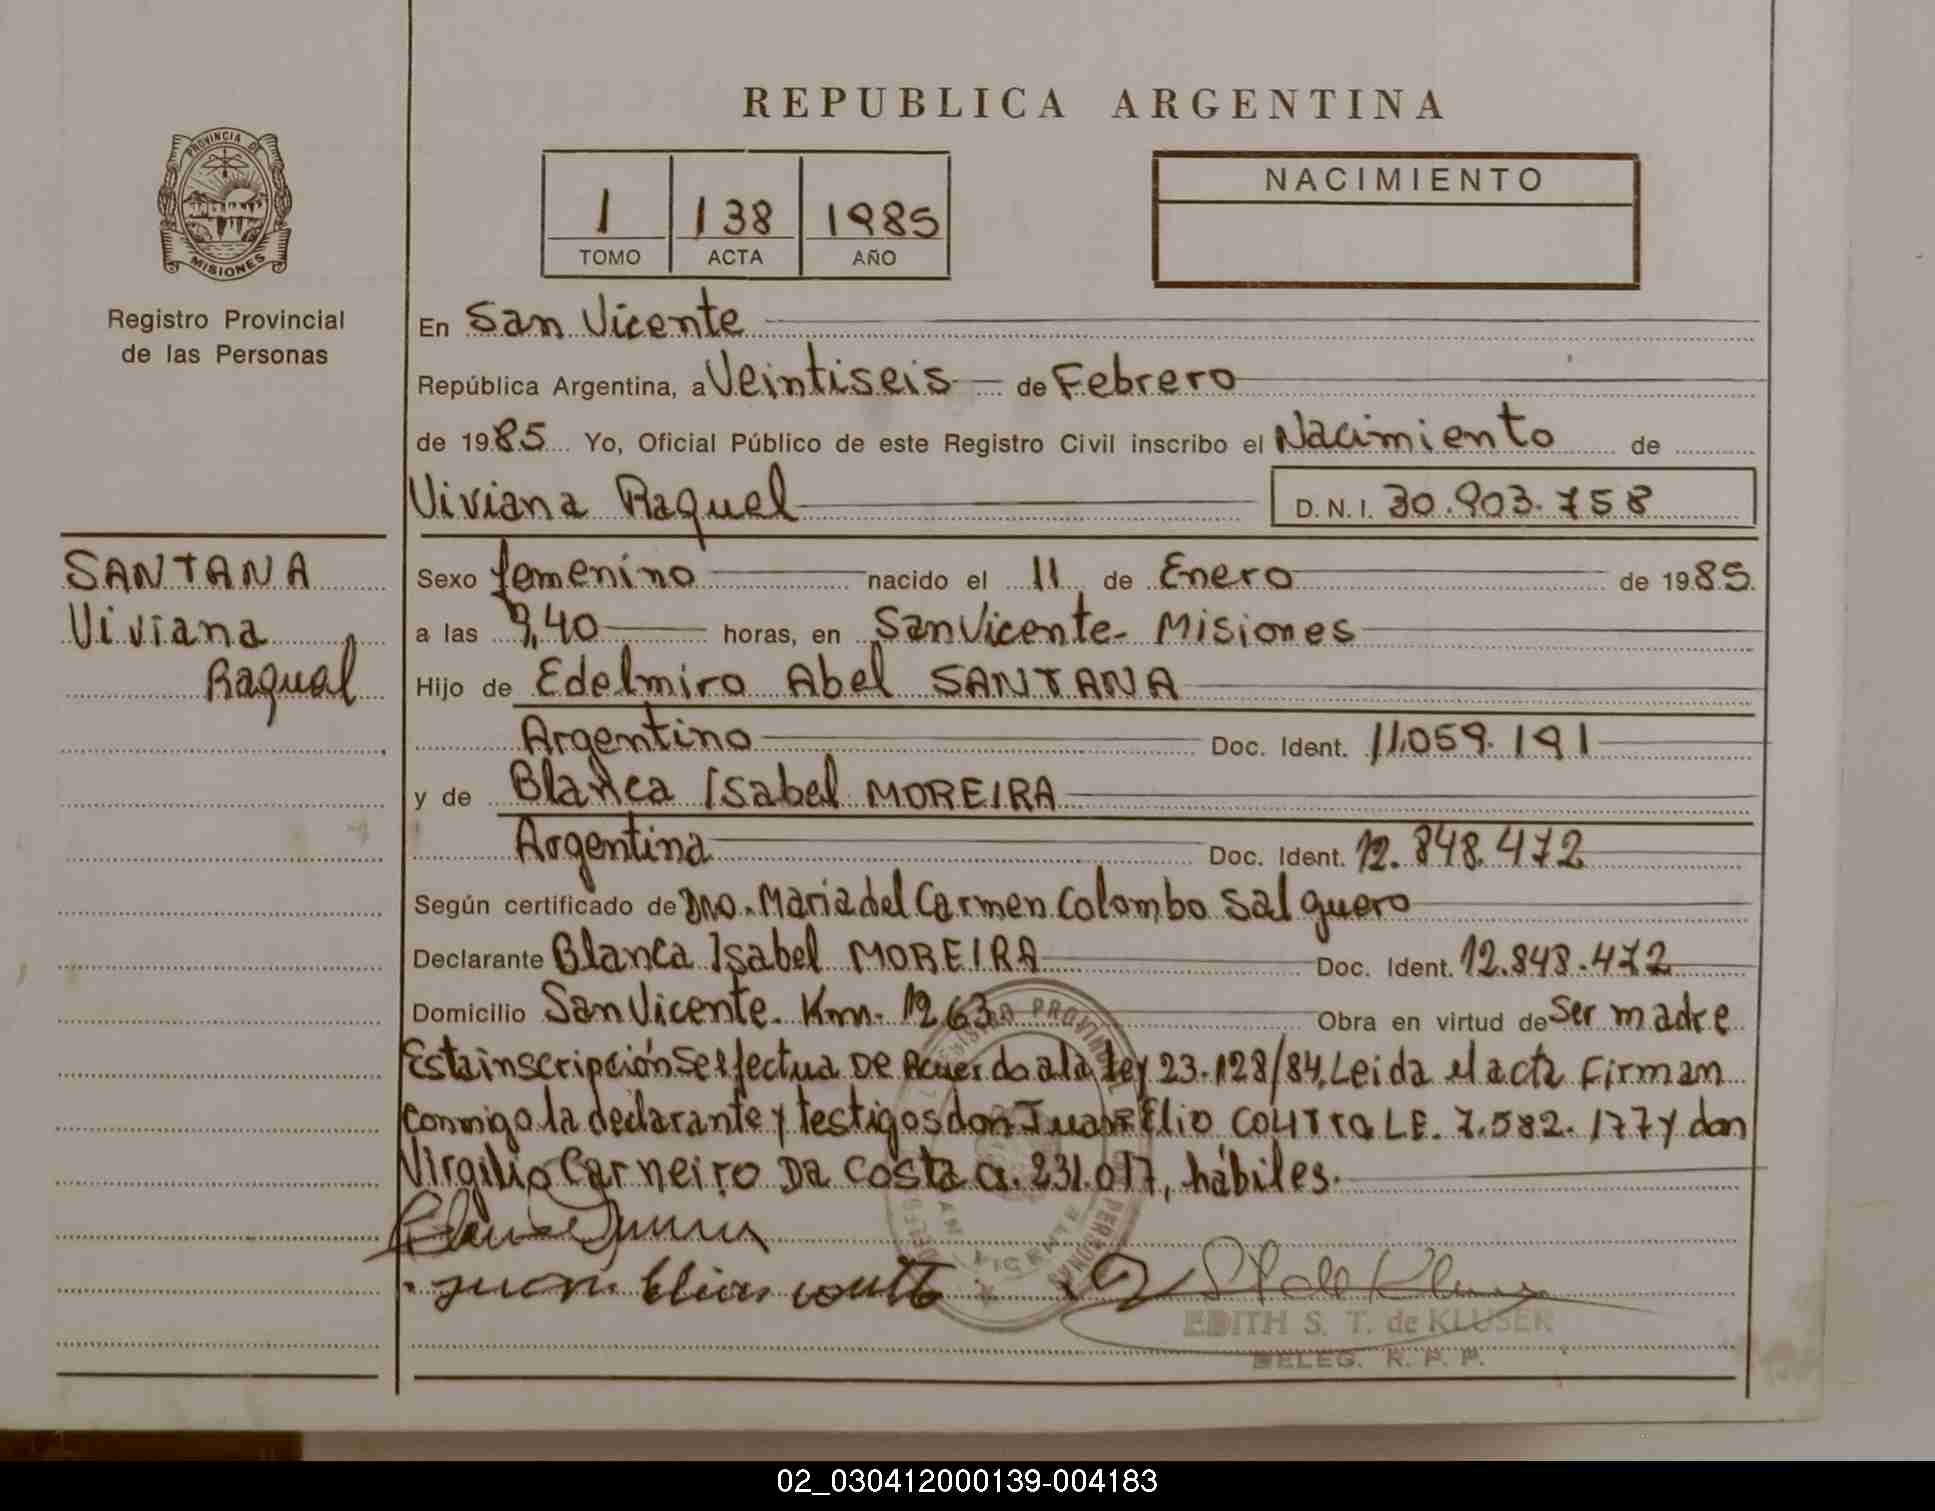 REPUBLICA ARGENTINA
PROVINCIA DE
MISIONES
Registro Provincial
de las Personas
1 138 1985
TOMO ACTA AÑO
NACIMIENTO
En San Vicente
República Argentina, a Veintiseis de Febrero
de 1985 Yo, Oficial Público de este Registro Civil inscribo el Nacimiento de
Viviana Raquel D.N.I. 30.903.758
SANTANA
Viviana
Raquel
Sexo femenino nacido el 11 de Enero de 1985.
a las 9,40 horas, en San Vicente - Misiones
Hijo de Edelmiro Abel SANTANA
Argentino Doc. Ident. 11.059.191
y de Blanca Isabel MOREIRA
Argentina Doc. Ident. 12.848.472
Según certificado de Dra. Maria del Carmen Colombo Salguero
Declarante Blanca Isabel MOREIRA Doc. Ident. 12.848.472
Domicilio San Vicente. Km. 1263 Obra en virtud de Ser madre
Esta inscripción se efectua De Acuerdo a la Ley 23.128/84. Leida el acta Firman
conmigo la declarante y testigos don Juan Elio COUTTO LE. 7.582.177 y don
Virgilio Carneiro Da Costa CI. 231.017, hábiles.
EDITH S. T. de KLUSER
DELEG. R. P. P.
02_030412000139-004183